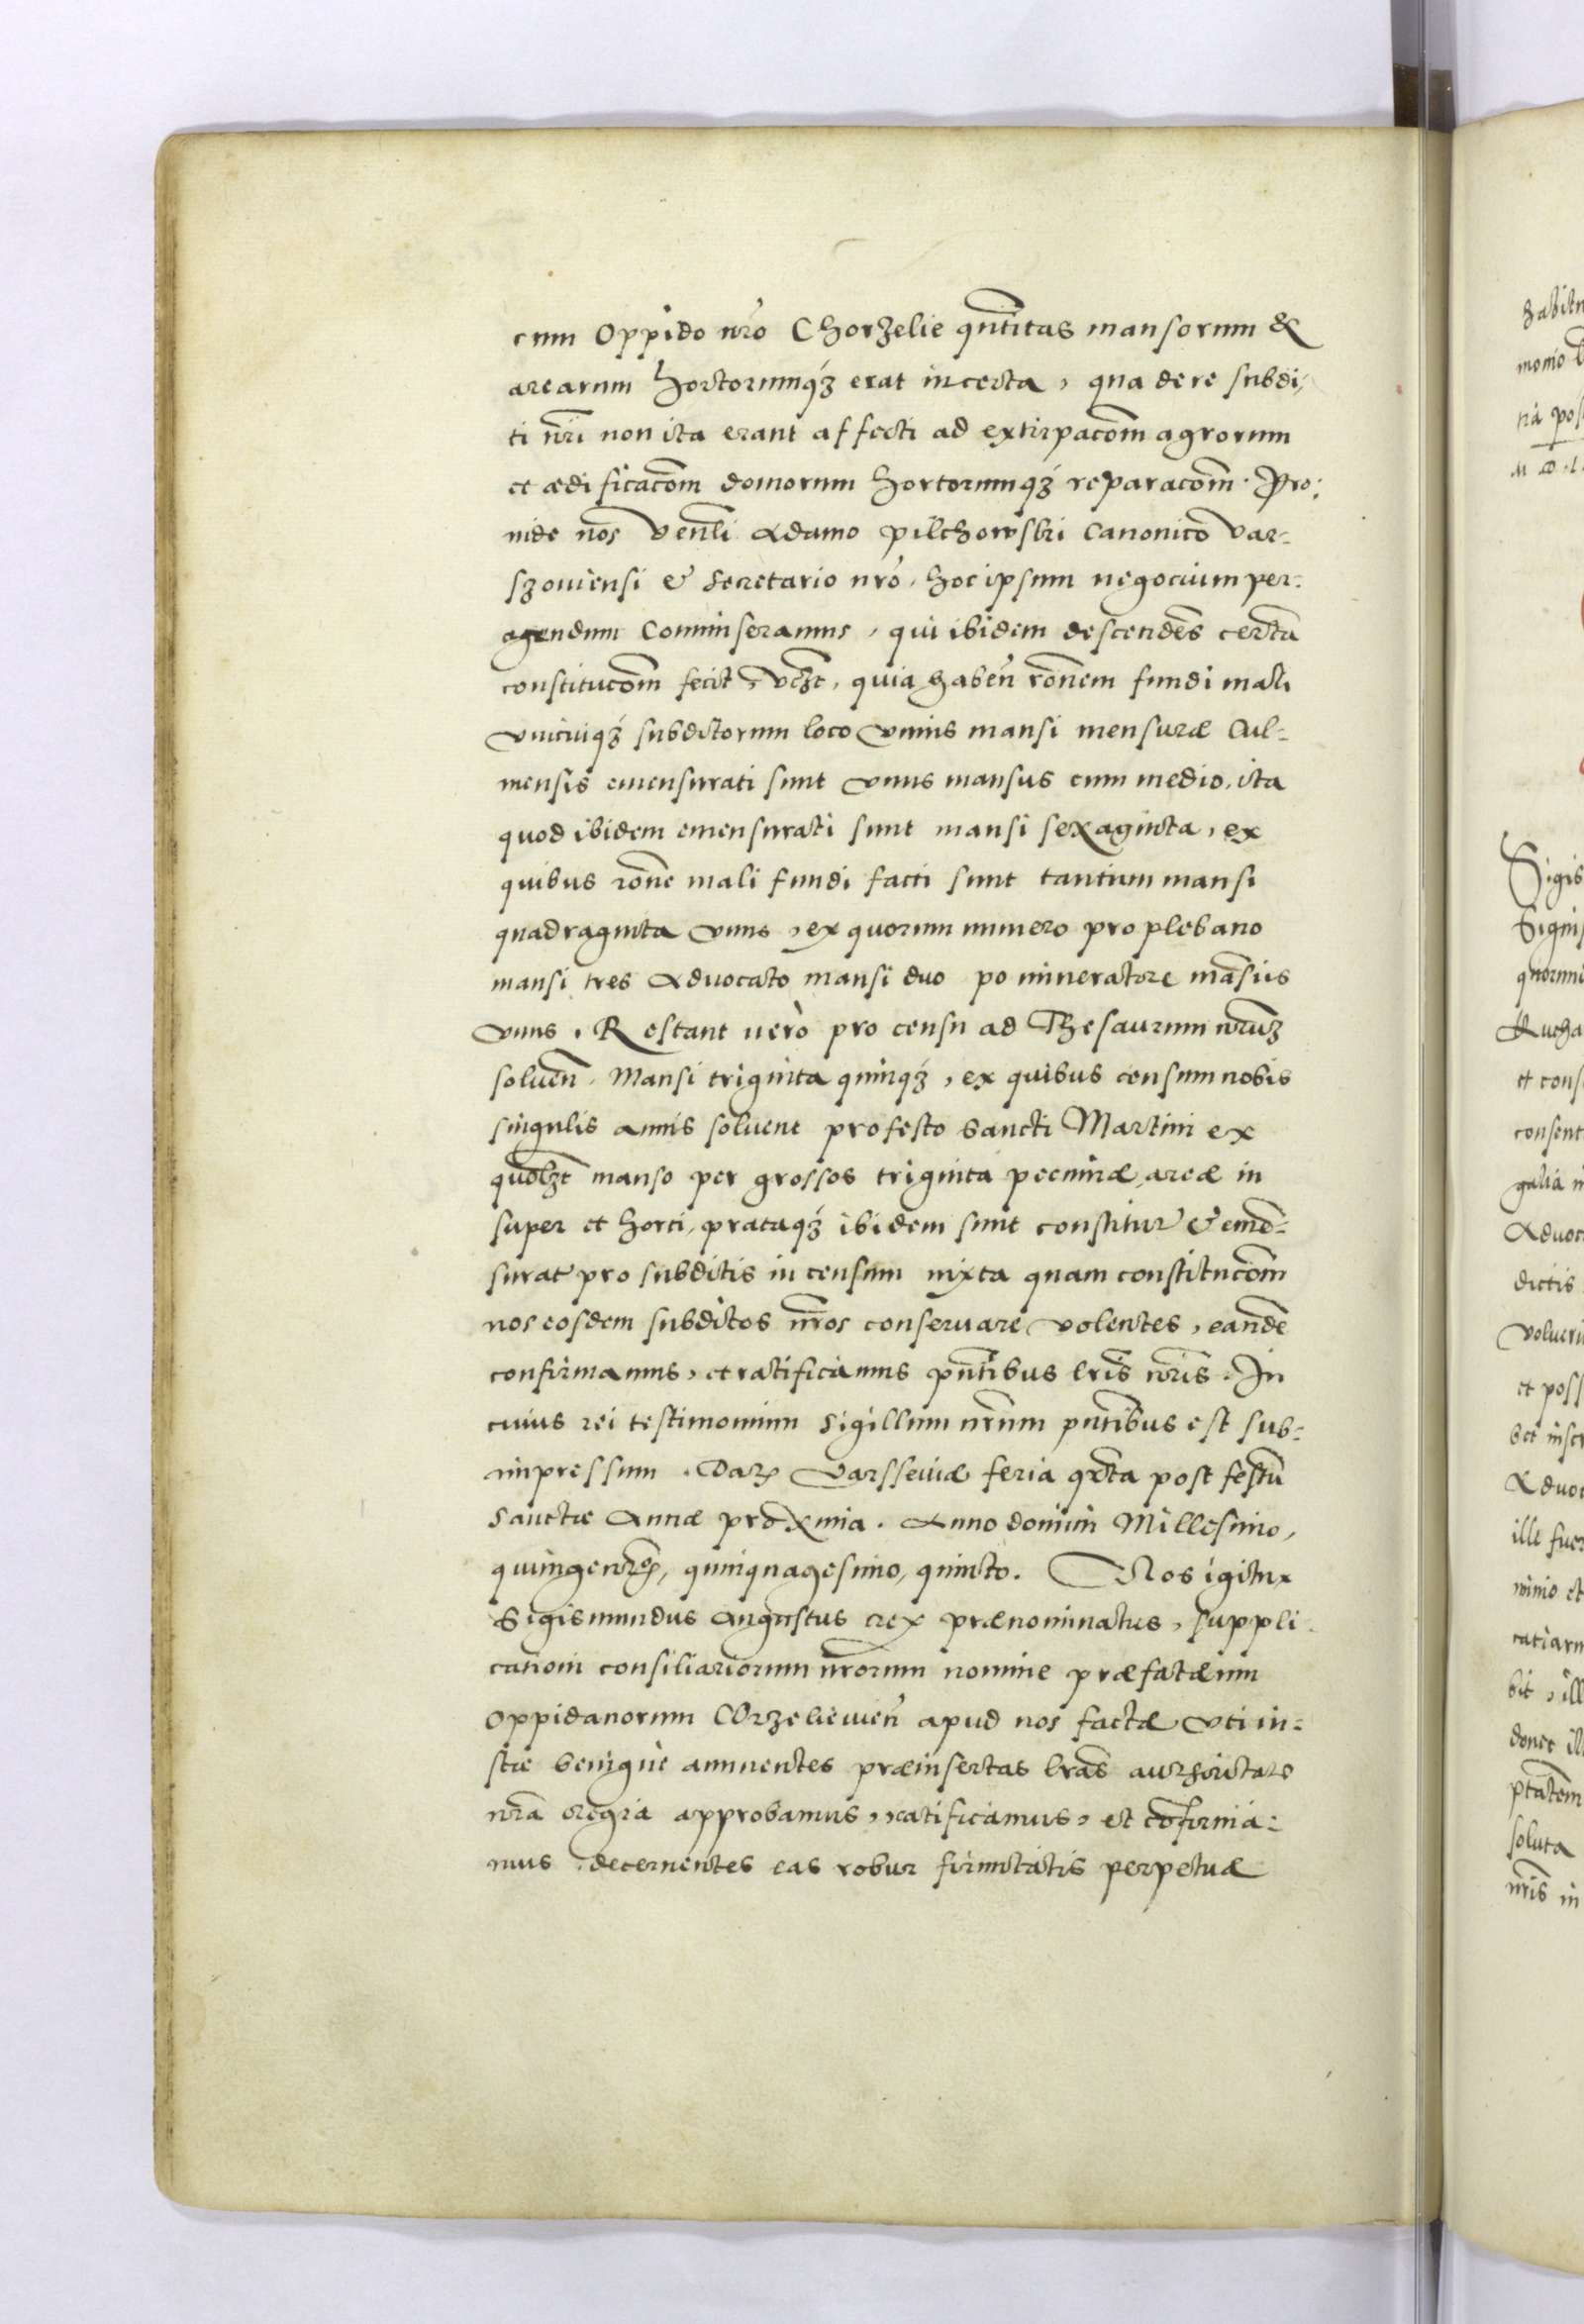 cum Oppido nr̃o Chorzelie qñtitas mansorum &
arearum hortorumqꝫ erat incerta, qua de re subdi,
ti nr̃i non ita erant affecti ad extirpacõm agrorum
et ædificacõm domorum hortorumqꝫ reparacõm. Pro:
inde nos Venli Adamo Pilchowski Canonico Var=
szouiensi & Secretario nr̃o, hoc ipsum negocium per:
agendum Commiseramus, qui ibidem descendẽs certã
constitucõm fecit, vczt, quia habeñ rõnem fundi mali
vnicuiqꝫ subditorum loco vnius mansi mensuræ Cul=
mensis emensurati sunt vnus mansus cum medio, ita
quod ibidem emensurati sunt mansi sexaginta, ex
quibus rõne mali fundi facti sunt tantum mansi
quadraginta vnus, ex quorum numero pro plebano
mansi tres Aduocato mansi duo po mineratore mãsus
vnus. Restant uerò pro censu ad Thesaurum nrũꝫ
soluen̄. Mansi triginta quinqꝫ, ex quibus censum nobis
singulis annis soluent pro festo Sancti Martini ex
quolꝫt manso per grossos triginta pecuniæ, areæ in
super et horti, prataqꝫ ibidem sunt constitut̃ & emẽ=
surat̃ pro subditis in censum iuxta quam constitucõm
nos eosdem subditos nr̃os conseruare volentes, eandẽ
confirmamus, et ratificamus pñtibus lrĩs nrĩs. In
cuius rei testimonium Sigillum nr̃um pñtibus est sub=
impressum. Datꝝ Varsseuiæ feria qrta post festũ
Sanctæ Annæ proxima. Anno domini Millesimo,
quingentesꝫ, quinquagesimo, quinto. Nos igitur
Sigismundus Augustus rex prænominatus, suppli.
cationi consiliariorum nr̃orum nomine præfatæ im
Oppidanorum Corzelieuien̄ apud nos factæ vti in=
stæ benigne annuentes præinsertas lrãs authoritate
nr̃a regia approbamus, ratificamus, et cõfirma:
mus, decernentes eas robur firmitatis perpetuæ